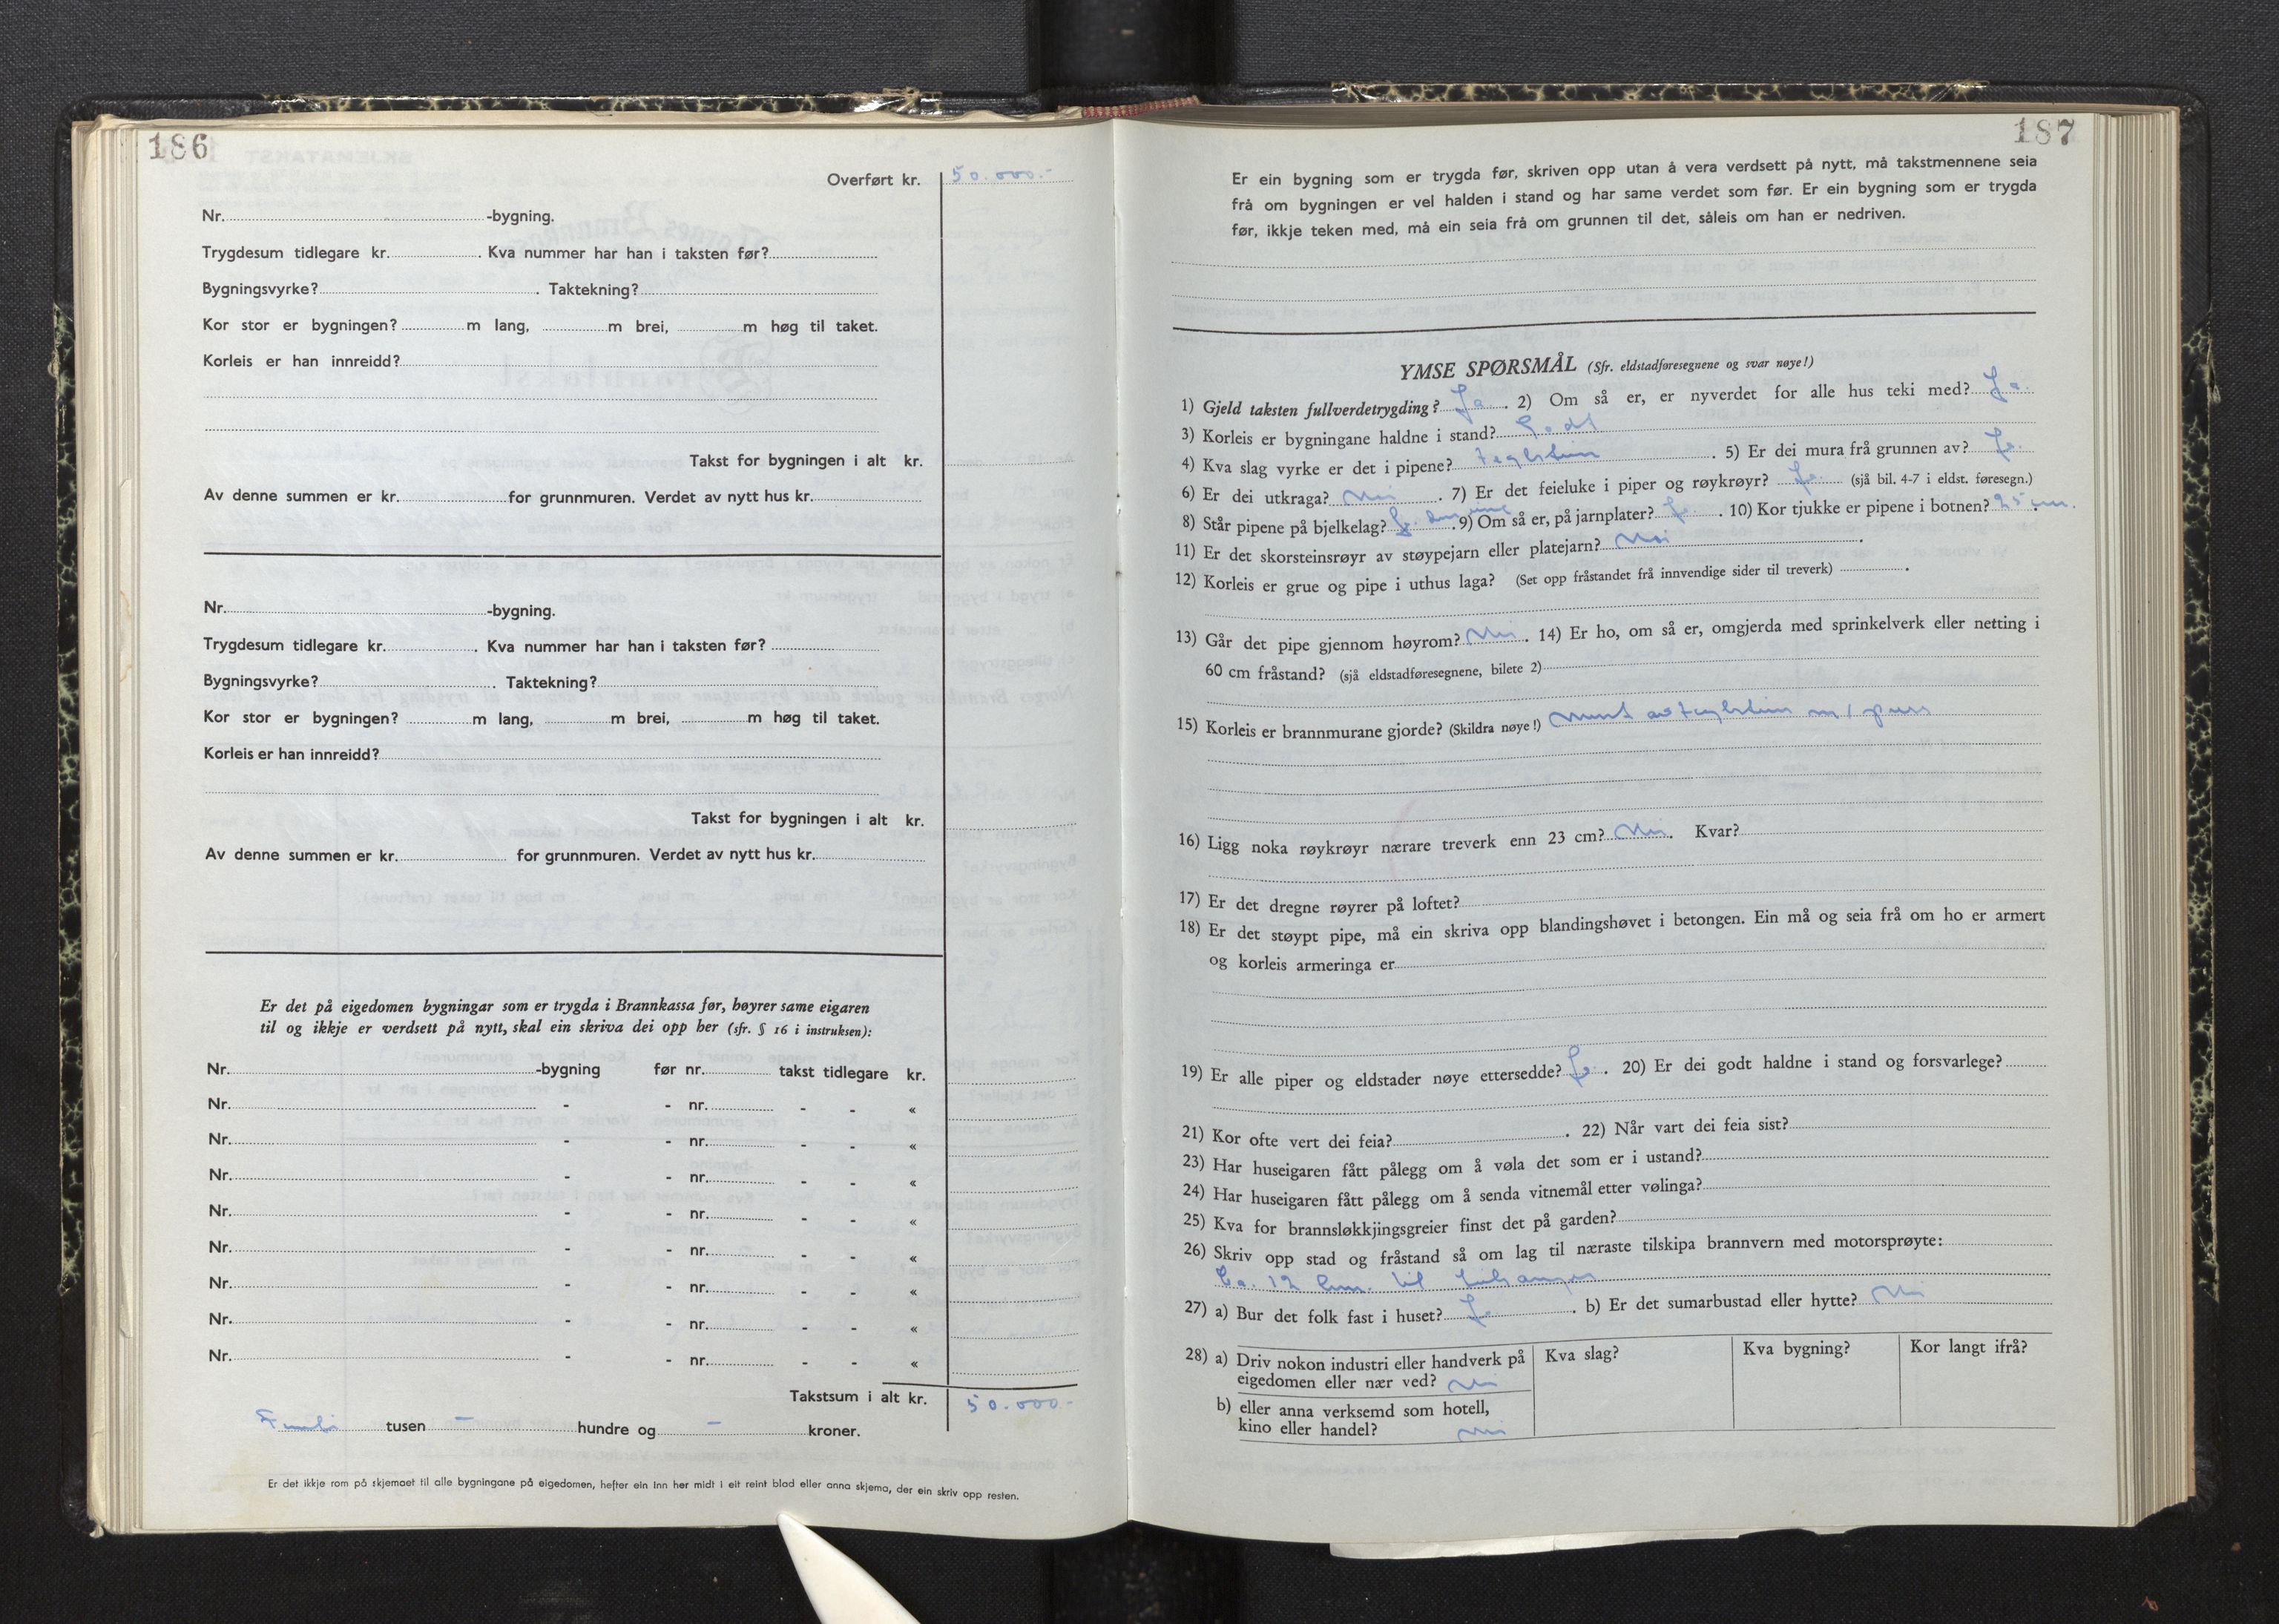 186
Overført kr. 50.000.-
Nr. -bygning.
Trygdesum tidlegare kr. . Kva nummer har han i taksten før?
Bygningsvyrke? . Taktekning?
Kor stor er bygningen? m lang, m brei, m høg til taket.
Korleis er han innreidd?
Takst for bygningen i alt kr.
Av denne summen er kr. for grunnmuren. Verdet av nytt hus kr.
Nr. -bygning.
Trygdesum tidlegare kr. . Kva nummer har han i taksten før?
Bygningsvyrke? . Taktekning?
Kor stor er bygningen? m lang, m brei, m høg til taket.
Korleis er han innreidd?
Takst for bygningen i alt kr.
Av denne summen er kr. for grunnmuren. Verdet av nytt hus kr.
Er det på eigedomen bygningar som er trygda i Brannkassa før, høyrer same eigaren
til og ikkje er verdsett på nytt, skal ein skriva dei opp her (sfr. § 16 i instruksen):
Nr. -bygning før nr. takst tidlegare kr.
Nr. - - nr. - - «
Nr. - - nr. - - «
Nr. - - nr. - - «
Nr. - - nr. - - «
Nr. - - nr. - - «
Nr. - - nr. - - «
Nr. - - nr. - - «
Nr. - - nr. - - «
Takstsum i alt kr. 50.000.-
Femti tusen - hundre og - kroner.
Er det ikkje rom på skjemaet til alle bygningane på eigedomen, hefter ein inn her midt i eit reint blad eller anna skjema, der ein skriv opp resten.
187
Er ein bygning som er trygda før, skriven opp utan å vera verdsett på nytt, må takstmennene seia
frå om bygningen er vel halden i stand og har same verdet som før. Er ein bygning som er trygda
før, ikkje teken med, må ein seia frå om grunnen til det, såleis om han er nedriven.
YMSE SPØRSMÅL (Sfr. eldstadføresegnene og svar nøye!)
1) Gjeld taksten fullverdetrygding? Ja . 2) Om så er, er nyverdet for alle hus teki med? Ja.
3) Korleis er bygningane haldne i stand? Godt
4) Kva slag vyrke er det i pipene? teglstein . 5) Er dei mura frå grunnen av? Ja.
6) Er dei utkraga? Nei . 7) Er det feieluke i piper og røykrøyr? Ja. (sjå bil. 4-7 i eldst. føresegn.)
8) Står pipene på bjelkelag? . 9) Om så er, på jarnplater? . 10) Kor tjukke er pipene i botnen? 25 cm.
11) Er det skorsteinsrøyr av støypejarn eller platejarn? Nei .
12) Korleis er grue og pipe i uthus laga? (Set opp fråstandet frå innvendige sider til treverk) .
13) Går det pipe gjennom høyrom? Nei . 14) Er ho, om så er, omgjerda med sprinkelverk eller netting i
60 cm fråstand? (sjå eldstadføresegnene, bilete 2)
15) Korleis er brannmurane gjorde? (Skildra nøye!) Murt av teglstein m/ puss
16) Ligg noka røykrøyr nærare treverk enn 23 cm? Nei. Kvar?
17) Er det dregne røyrer på loftet?
18) Er det støypt pipe, må ein skriva opp blandingshøvet i betongen. Ein må og seia frå om ho er armert
og korleis armeringa er
19) Er alle piper og eldstader nøye ettersedde? Ja. . 20) Er dei godt haldne i stand og forsvarlege?
21) Kor ofte vert dei feia? . 22) Når vart dei feia sist?
23) Har huseigaren fått pålegg om å vøla det som er i ustand?
24) Har huseigaren fått pålegg om å senda vitnemål etter vølinga?
25) Kva for brannsløkkjingsgreier finst det på garden?
26) Skriv opp stad og fråstand så om lag til næraste tilskipa brannvern med motorsprøyte:
Ca. 12 km. til
27) a) Bur det folk fast i huset? Ja . b) Er det sumarbustad eller hytte? Nei
28) a) Driv nokon industri eller handverk på
eigedomen eller nær ved? Nei
Kva slag? Kva bygning? Kor langt ifrå?
b) eller anna verksemd som hotell,
kino eller handel? Nei